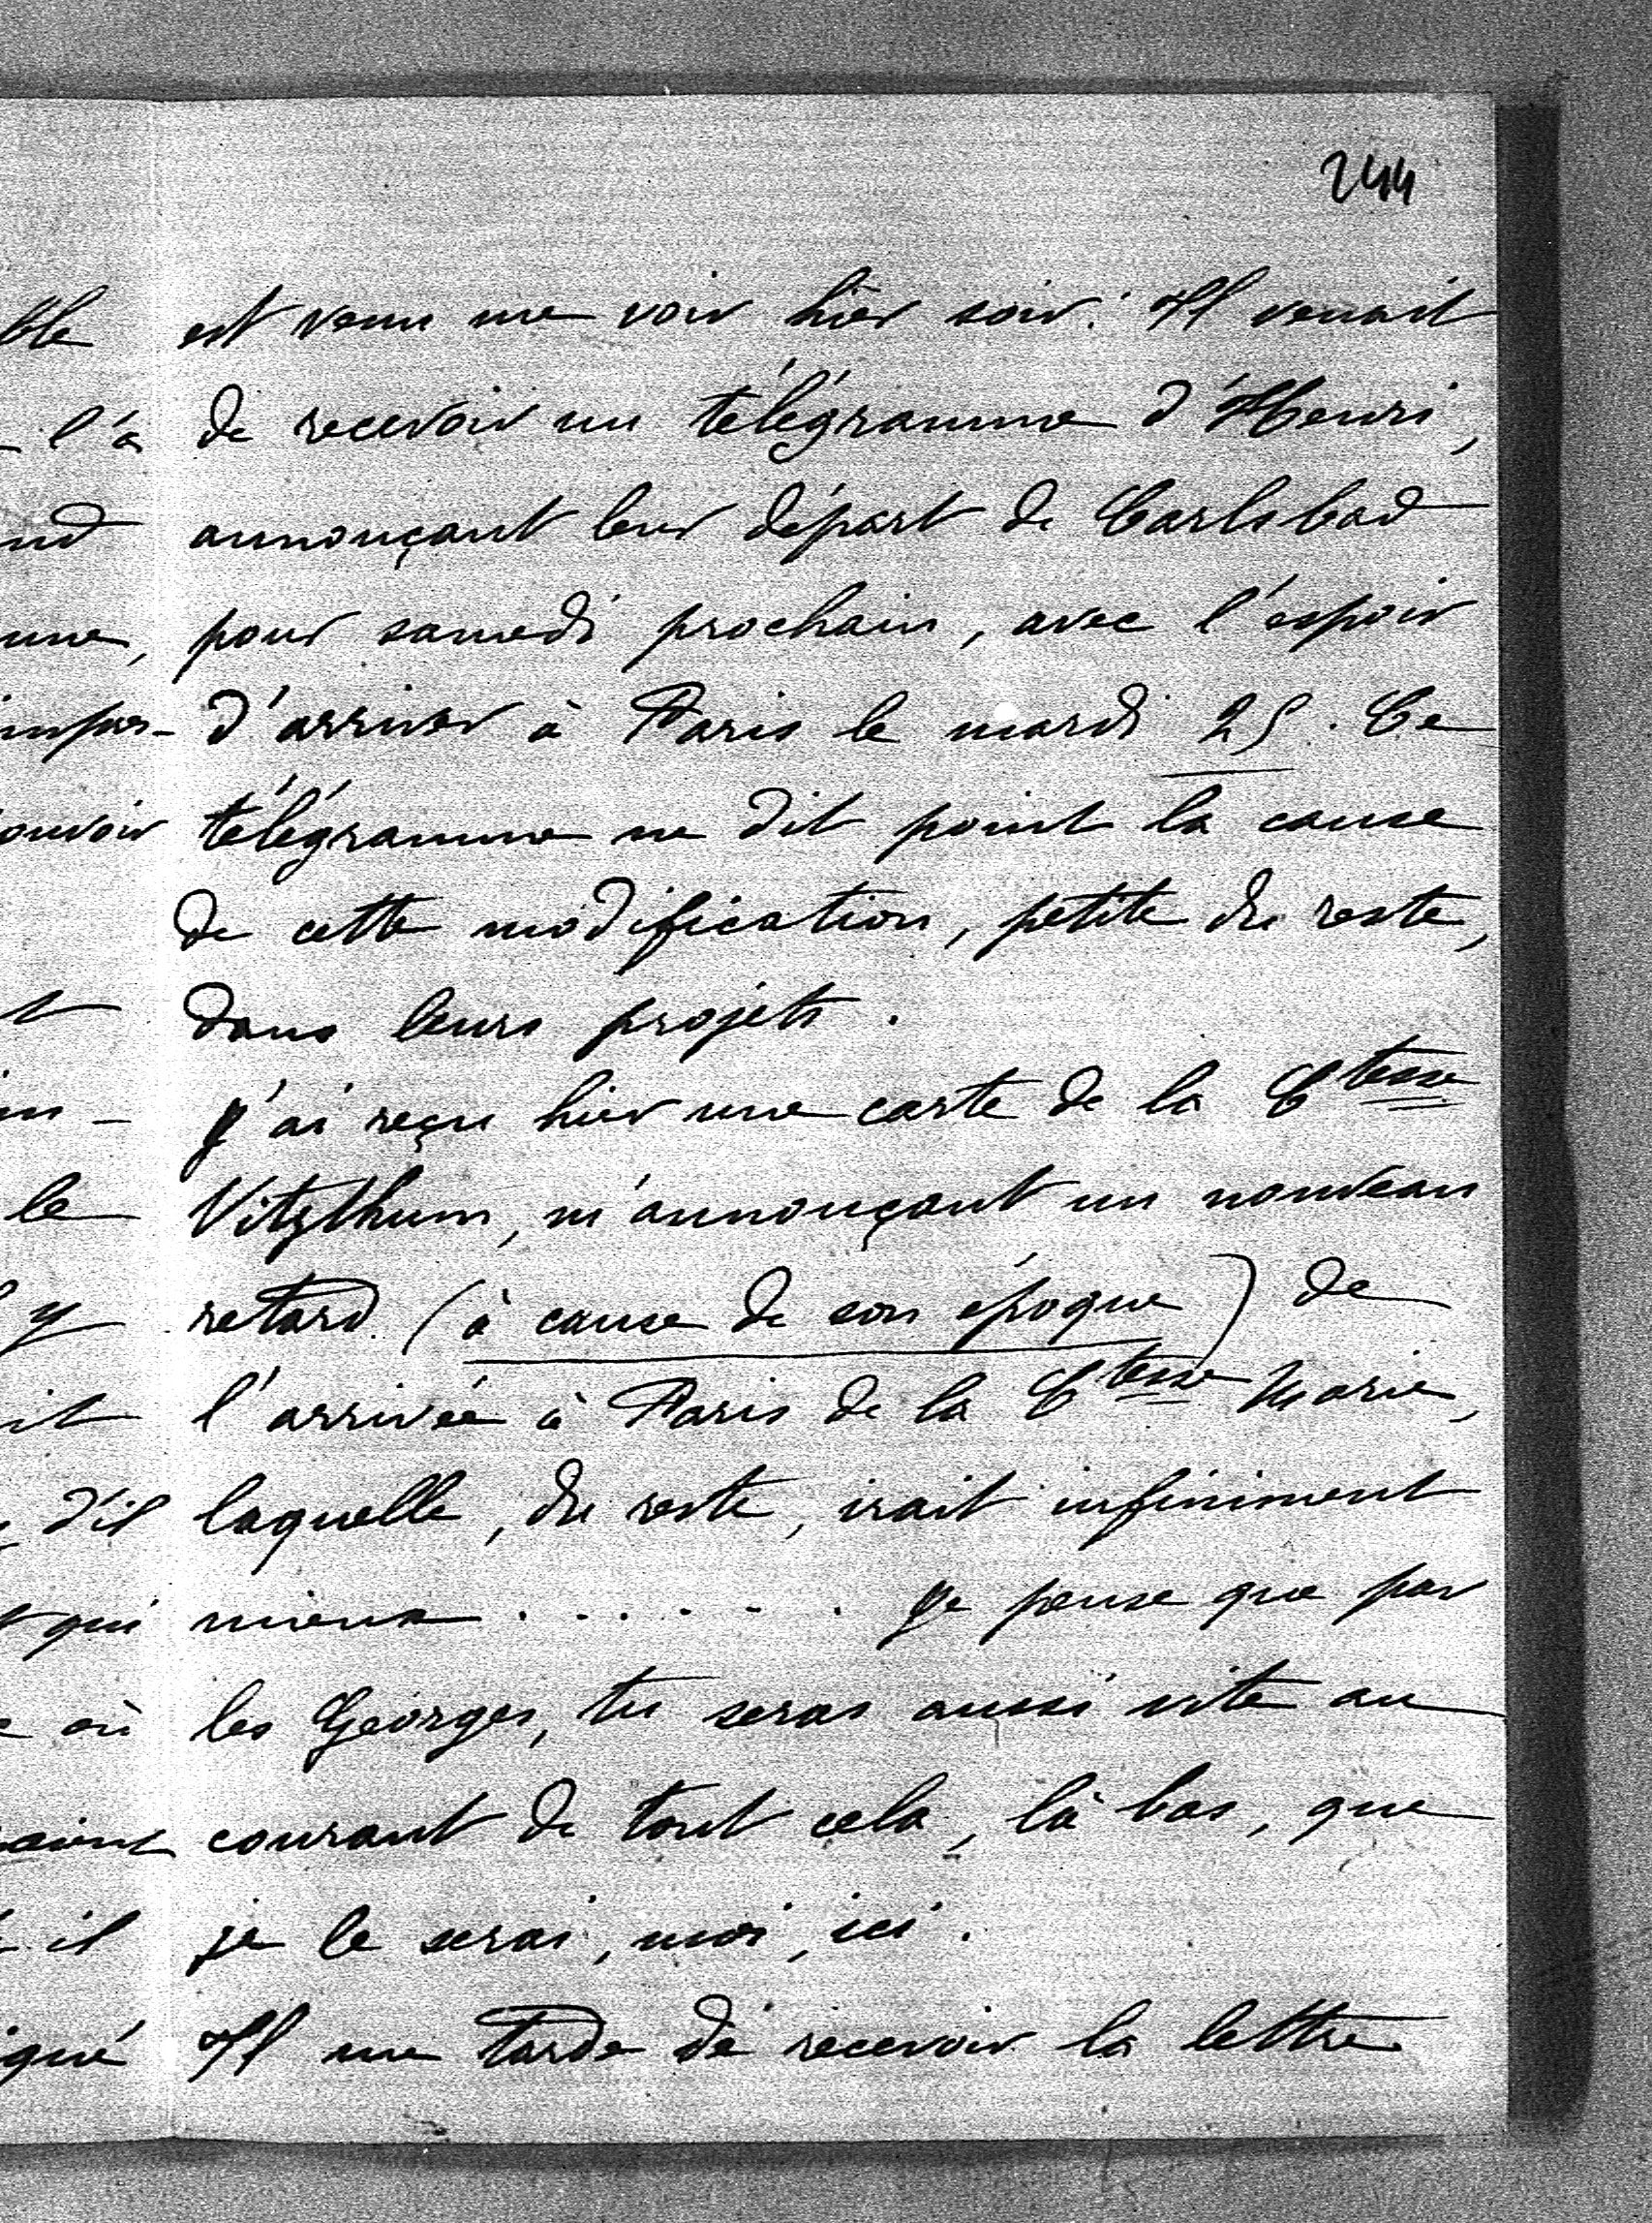 244
est venu me voir hier soir. Il venait
de recevoir un télégramme d'Henri,
annonçant leur départ de Carlsbad
pour samedi prochain, avec l'espoir
d'arriver à Paris le mardi 25. Ce
télégramme ne dit point la cause
de cette modification, petite du reste,
dans leurs projets.
J'ai reçu hier une carte de la Ctesse
Vitzthum, m'annonçant un nouveau
retard (à cause de son époque) de
l'arrivée à Paris de la Ctesse Marie,
laquelle, du reste, irait infiniment
mieux . . . . . . Je pense que par
les Georges, tu seras aussi vite au
courant de tout cela, là bas, que
je le serai, moi, ici.
Il me tarde de recevoir la lettre